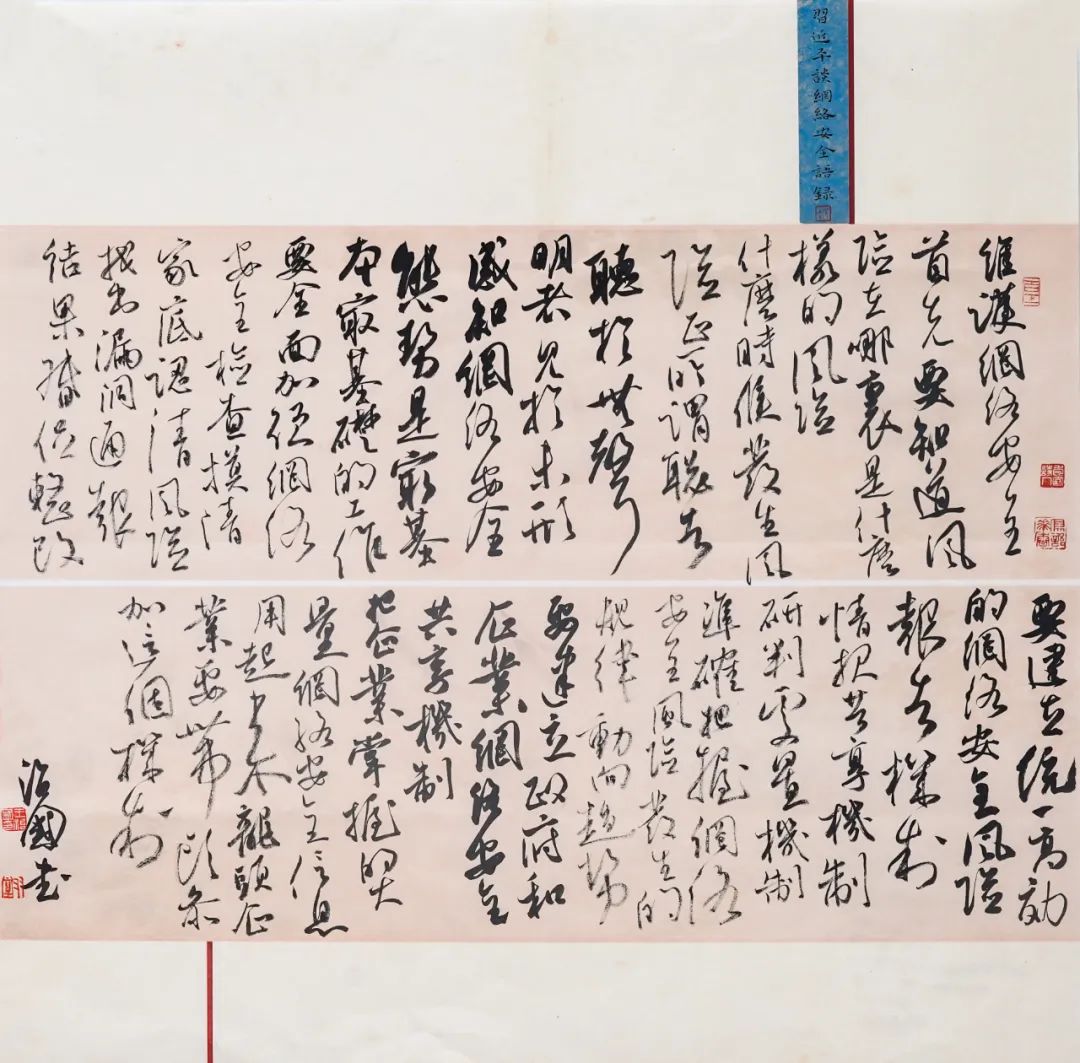 習近平談網絡安全語録
維護網络安全
首先要知道風
險在哪裏是什麽
樣的風險
什麽時候發生風
險正所謂聪者
聽於無聲
明者見於未形
感知網络安全
態勢是最基
本最基礎的工作
要全面加强網络
安全檢查摸清
家底認清風險
找出漏洞通報
结果督促整改
要建立统一高効
的網络安全風險
報告機制
情报共享機制
研判処置機制
準確把握網络
安全風險發生的
規律動向趨勢
要建立政府和
企業網络安全
共享機制
把企業掌握的大
量網络安全信息
用起来龍頭企
業要带頭参
加这個機制
治國书